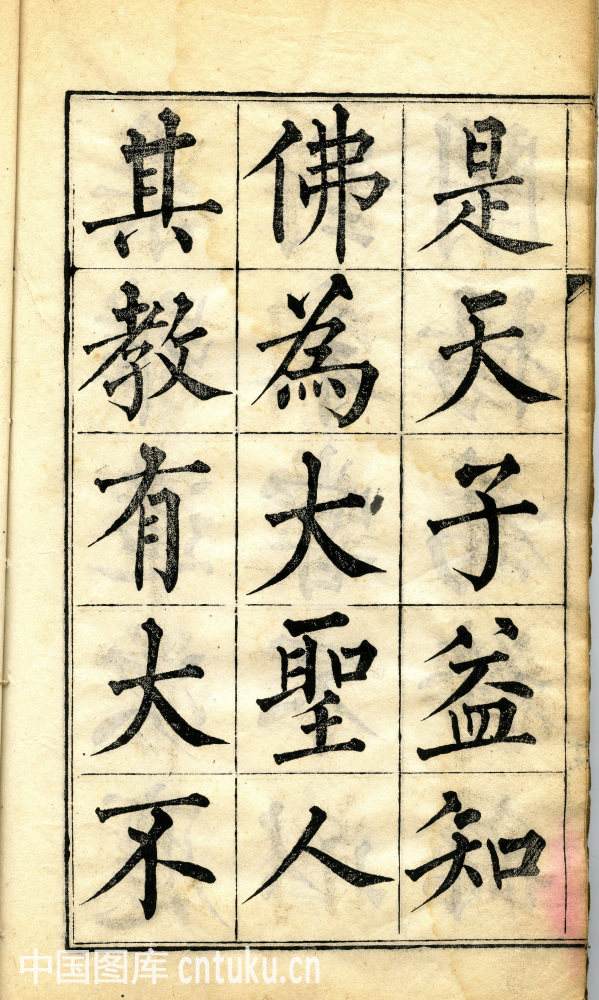 是天子益知
佛為大聖人
其教有大不
中国图库 cntuku.cn